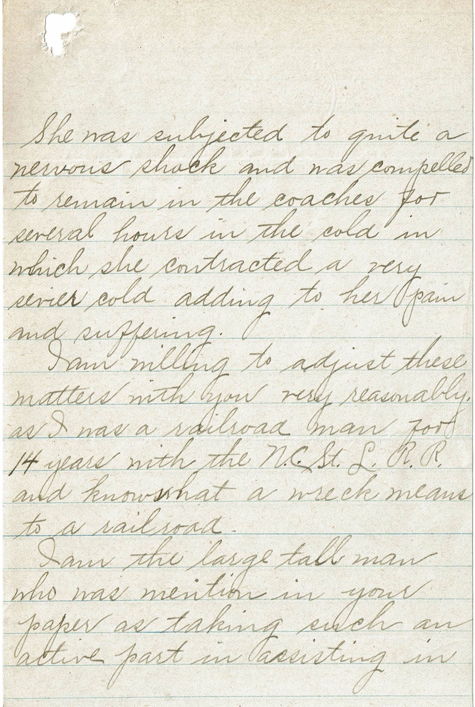 She was subjected to quite a
nervous shock and was compelled
to remain in the coaches for
several hours in the cold in
which she contracted a very
sevier cold adding to her pain
and suffering.
I am willing to adjust these
matters with you very reasonably.
as I was a railroad man for
14 years with the N.C. St. L. R. R.
and know what a wreck means
to a railroad.
I am the large tall man
who was mention in your
paper as taking such an
active part in assisting in